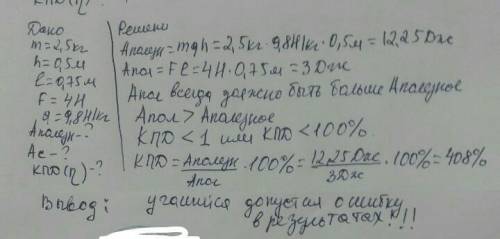 КПД(η) ?
Дано
m=2,5кг
h=0,5м
ℓ=0,75м
F=4Н
g=9,8Н/кг
Аполезн-?
Ас-?
КПД(η)-?
Решено
Аполезн=mgh=2,5кг·9,8Н/кг·0,5м=12,25Дж
Апол=Fℓ=4Н·0,75м=3Дж
Апол всегда должно быть больше Аполезное
Апол>Аполезное
КПД<1 или КПД<100%
КПД=Аполезн/Апол·100%=12,25Дж/3Дж·100%=408%
Вывод: учащийся допустил ошибку
в результатах!!!